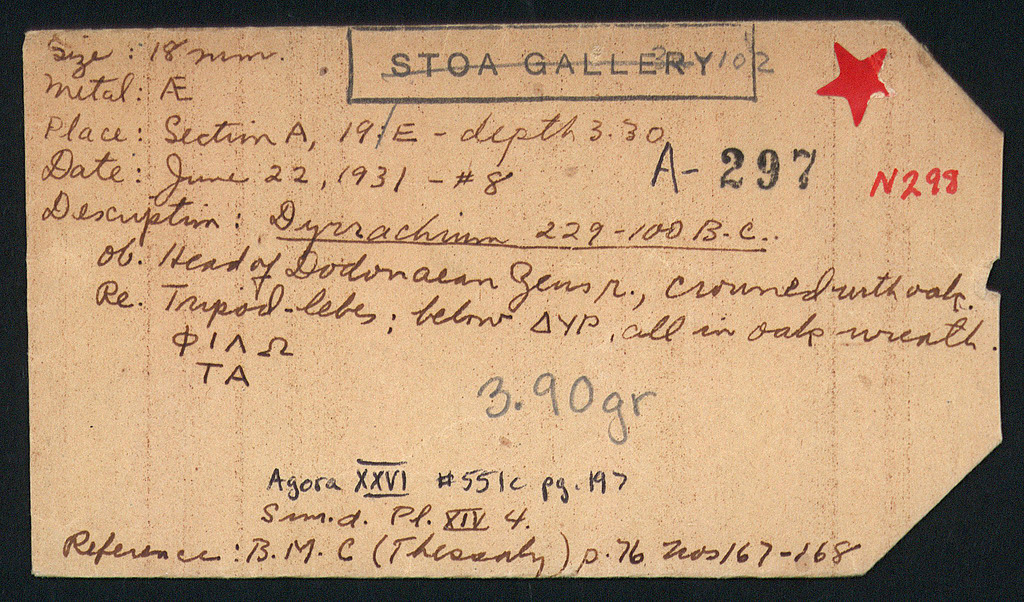 Size : 18 mm.
STOA GALLERY
102
Metal : Æ
Place : Section A, 19/E - depth 3.30
Date : June 22, 1931 - #8
A- 297
N298
Description : Dyrrachium 229-100 B.C.
Ob. Head of Dodonaean Zeus r., crowned with oak.
Re. Tripod-lebes ; below ΔΥΡ, all in oak wreath.
ΦΙΛΩ
ΤΑ
3.90gr
Agora XXVI #551c pg. 197
Sim.d. Pl. XIV 4.
Reference : B.M.C (Thessaly) p. 76 Nos 167-168